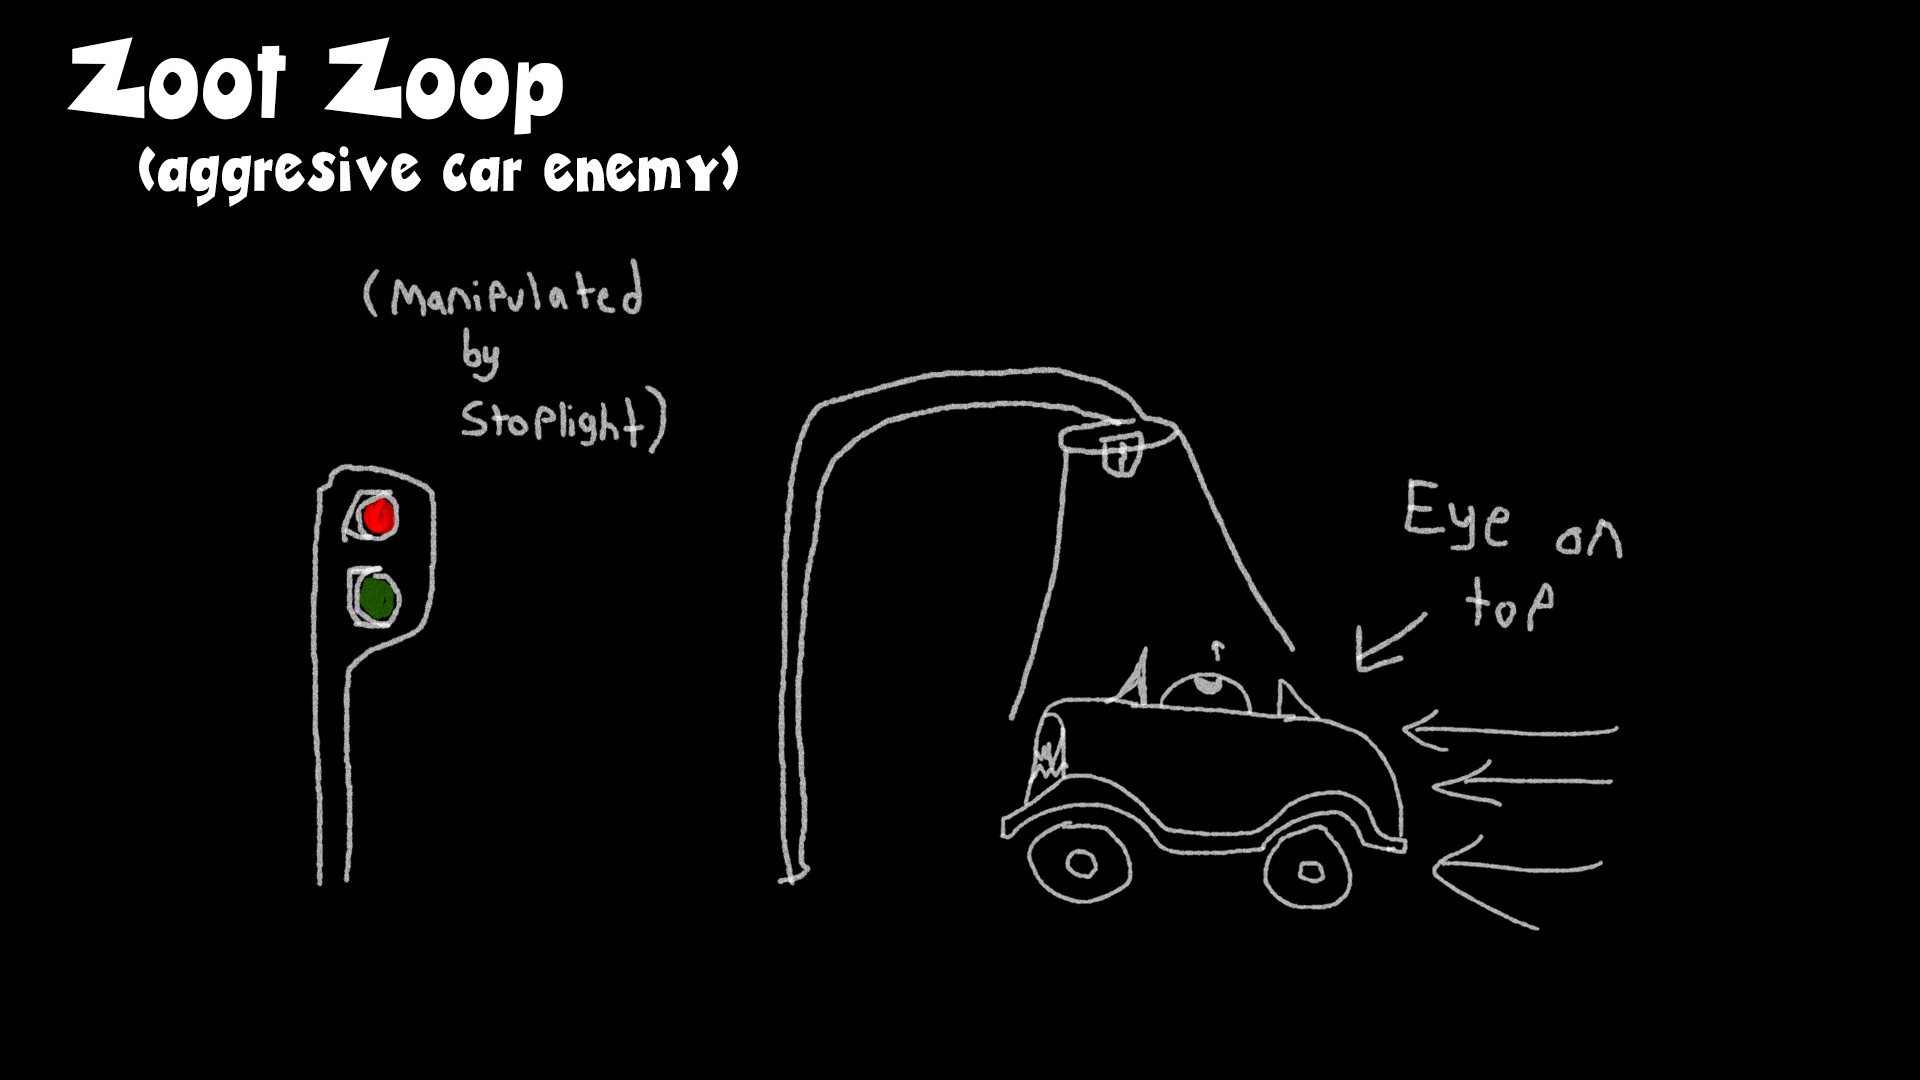 Zoot Zoop
(aggresive car enemy)
(Manipulated
by
Stoplight)
Eye on
top